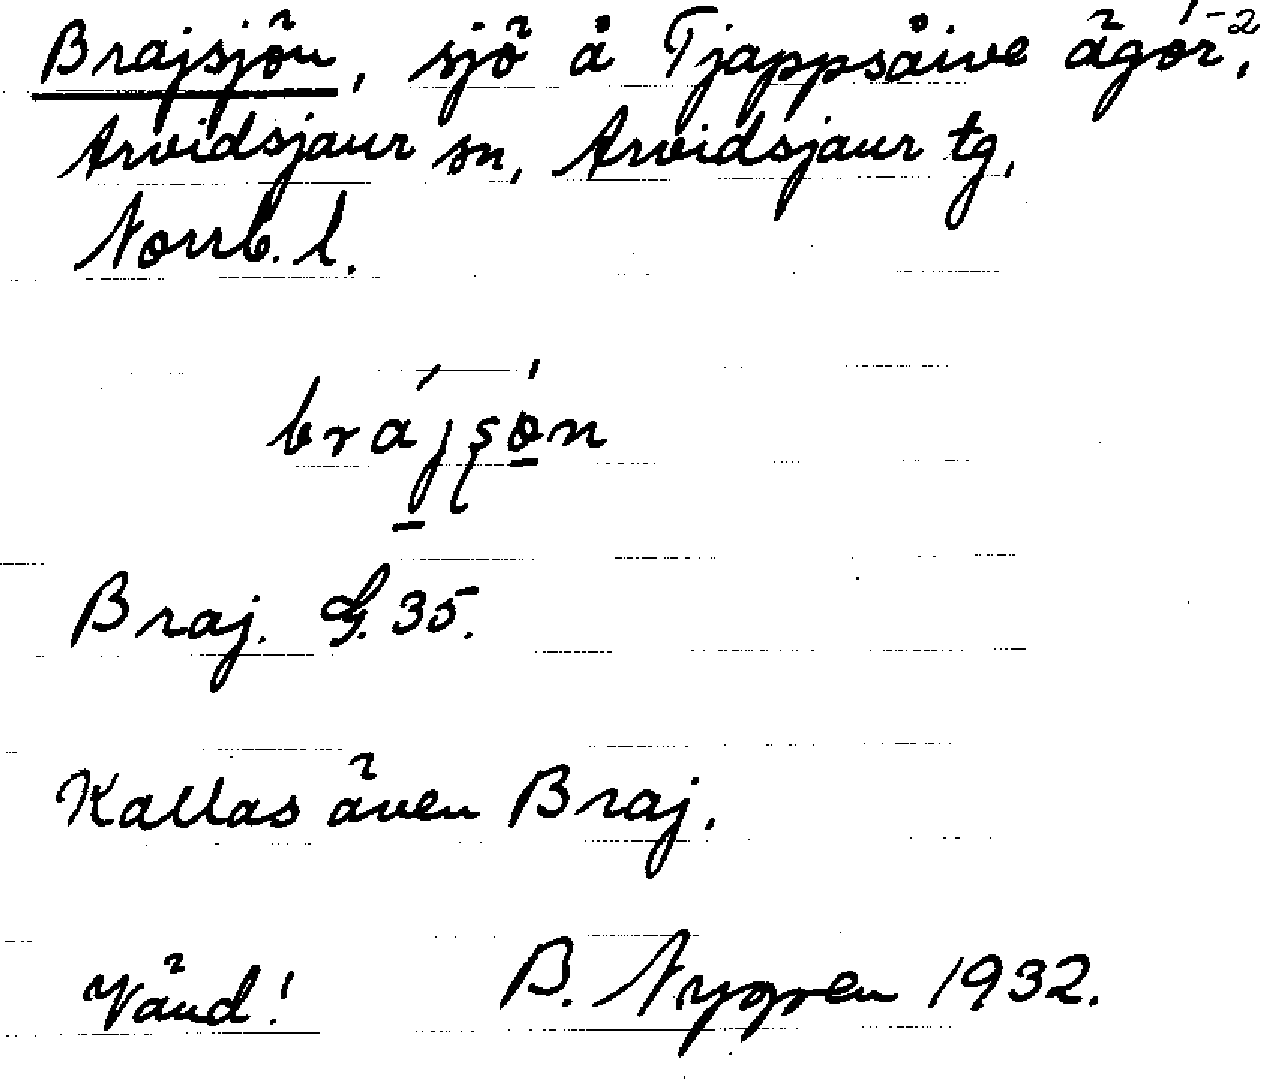 Brajsjön, sjö å Tjappsåive ägor 1-2,
Arvidsjaur sn, Arvidsjaur tg,
Norrb. l.
brájsǿn
Braj. G. 35.
Kallas även Braj.
Vänd! B. Nygren 1932.